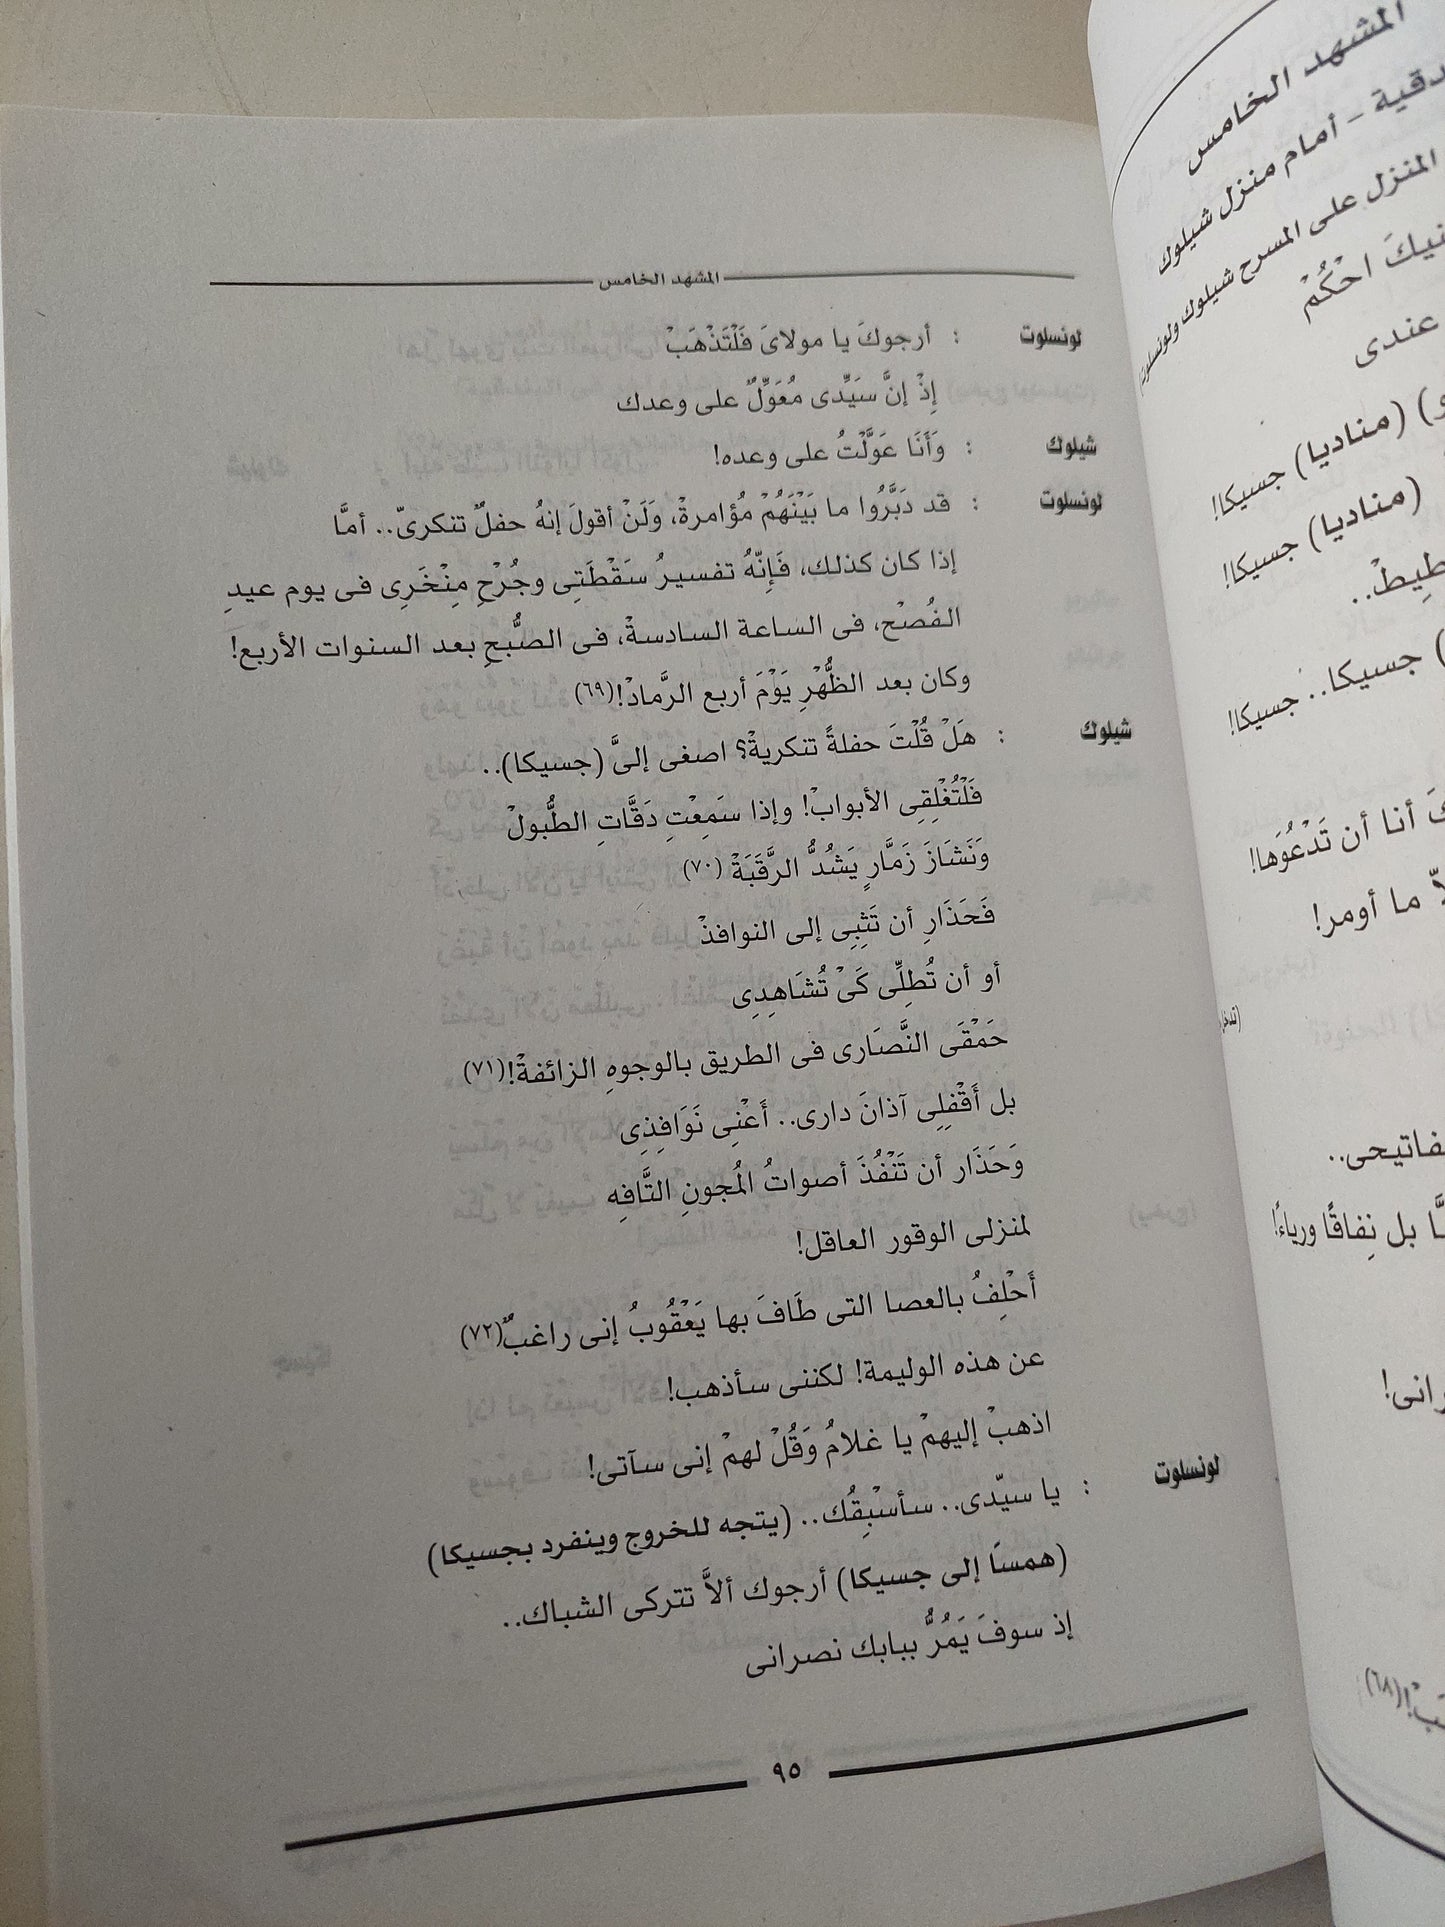 المشهد الخامس
دقية – أمام منزل شيلوك
المنزل على المسرح شيلوك ولونسلوت)
احْكُمْ
عندى
(مناديا) جسيكا!
(مناديا) جسيكا!
جسيكا.. جسيكا!
أنا أن تَدْعُوَها!
ما أومر!
بل نِفاقًا ورياءً!
(٦٨)
المشهد الخامس
لونسلوت : أرجوكَ يا مولاىَ فَلْتَذْهَبْ
إِذْ إنَّ سَيِّدى مُعَوِّلٌ على وعدك
شيلوك : وَأَنَا عَوَّلْتُ على وعده!
لونسلوت : قد دَبَّرُوا ما بَيْنَهُمْ مُؤامرةْ، وَلَنْ أقولَ إنهُ حفلٌ تنكرىّ.. أمَّا
إذا كان كذلك، فَإِنّهُ تفسيرُ سَقْطَتِى وجُرْحِ مِنْخَرِى فى يوم عيدِ
الفُصْح، فى الساعة السادسةْ، فى الصُّبحِ بعد السنوات الأربع!
وكان بعد الظُّهْرِ يَوْمَ أربع الرَّمادْ!(٦٩)
شيلوك : هَلْ قُلْتَ حفلةً تنكريةْ؟ اصغى إلىَّ (جسيكا)..
فَلْتُغْلِقِى الأبوابْ! وإذا سَمِعْتِ دَقَّاتِ الطُّبولْ
وَنَشَازَ زَمَّارٍ يَشُدُّ الرَّقَبَةْ (٧٠)
فَحَذَارِ أن تَثِبِى إلى النوافذْ
أو أن تُطِلِّى كَىْ تُشَاهِدِى
حَمْقَى النَّصَارى فى الطريق بالوجوهِ الزائفةْ!(٧١)
بل أَقْفِلِى آذانَ دارى.. أَعْنِى نَوَافِذِى
وَحَذَار أن تَنْفُذَ أصواتُ المُجونِ التَّافِهِ
لمنزلى الوقور العاقل!
أَحْلِفُ بالعصا التى طَافَ بها يَعْقُوبُ إنى راغبٌ(٧٢)
عن هذه الوليمة! لكننى سأذهب!
اذهبْ إليهمْ يا غلامُ وَقُلْ لهمْ إنى سآتى!
لونسلوت : يا سيّدى.. سأسْبِقُك.. (يتجه للخروج وينفرد بجسيكا)
(همسًا إلى جسيكا) أرجوك ألاَّ تتركى الشباك..
إذ سوفَ يَمُرُّ ببابك نصرانى
٩٥